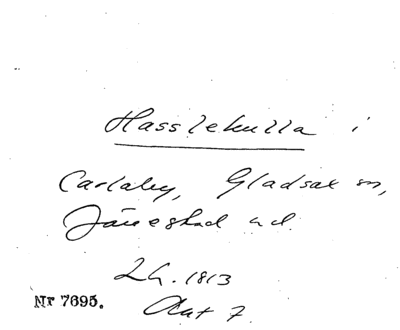 Hasslekulla i
Carlaby, Gladsax sn,
Järrestad hd.
LG. 1813
Akt 7
Nr 7695.